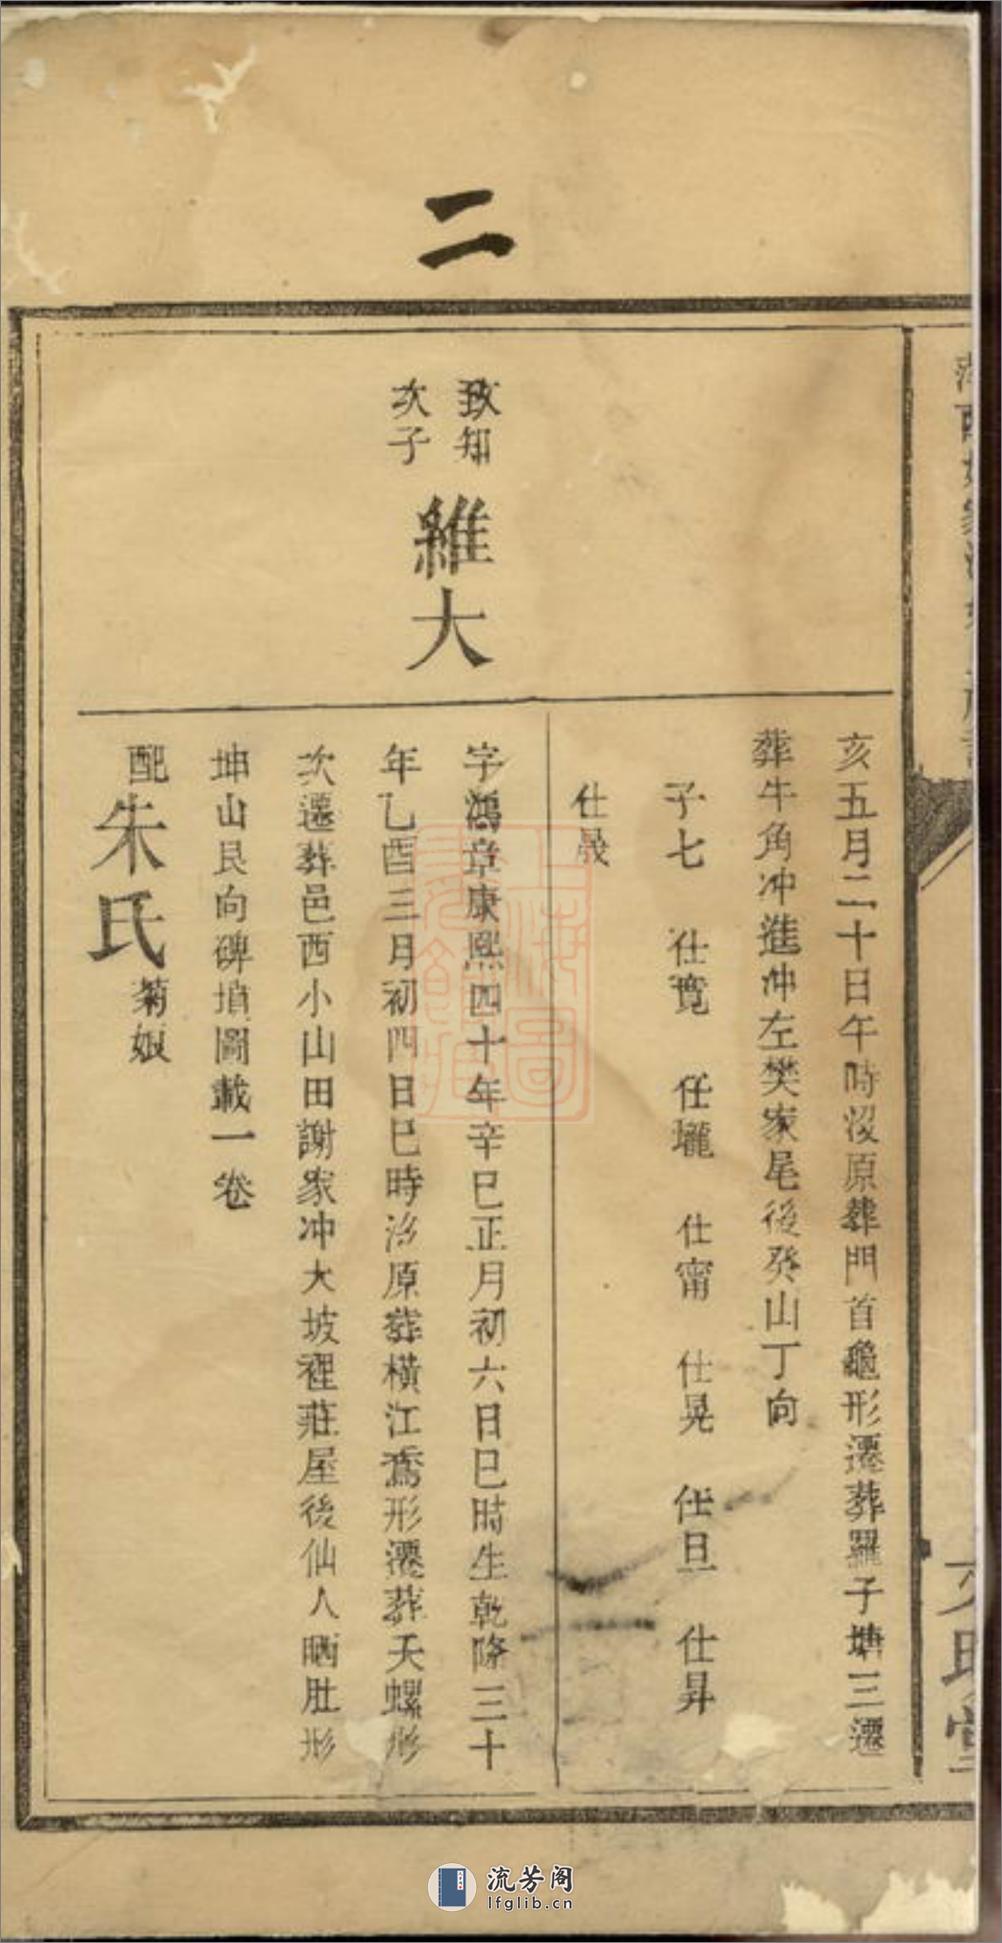 二
亥五月二十日午時沒原葬門首龜形遷葬羅子塘三遷
葬牛角冲進冲左樊家尾後癸山丁向
子七 仕寬 仕瓏 仕甯 仕晃 仕旦 仕昇
仕晟
致知
次子
維大
字鴻章康熙四十年辛巳正月初六日巳時生乾隆三十
年乙酉三月初四日巳時沒原葬橫江鵞形遷葬天螺形
次遷葬邑西小山田謝家冲大坡裡莊屋後仙人晒肚形
坤山艮向碑墳圖載一卷
配朱氏菊娘
上海圖書館藏
流芳阁
lfglib.cn